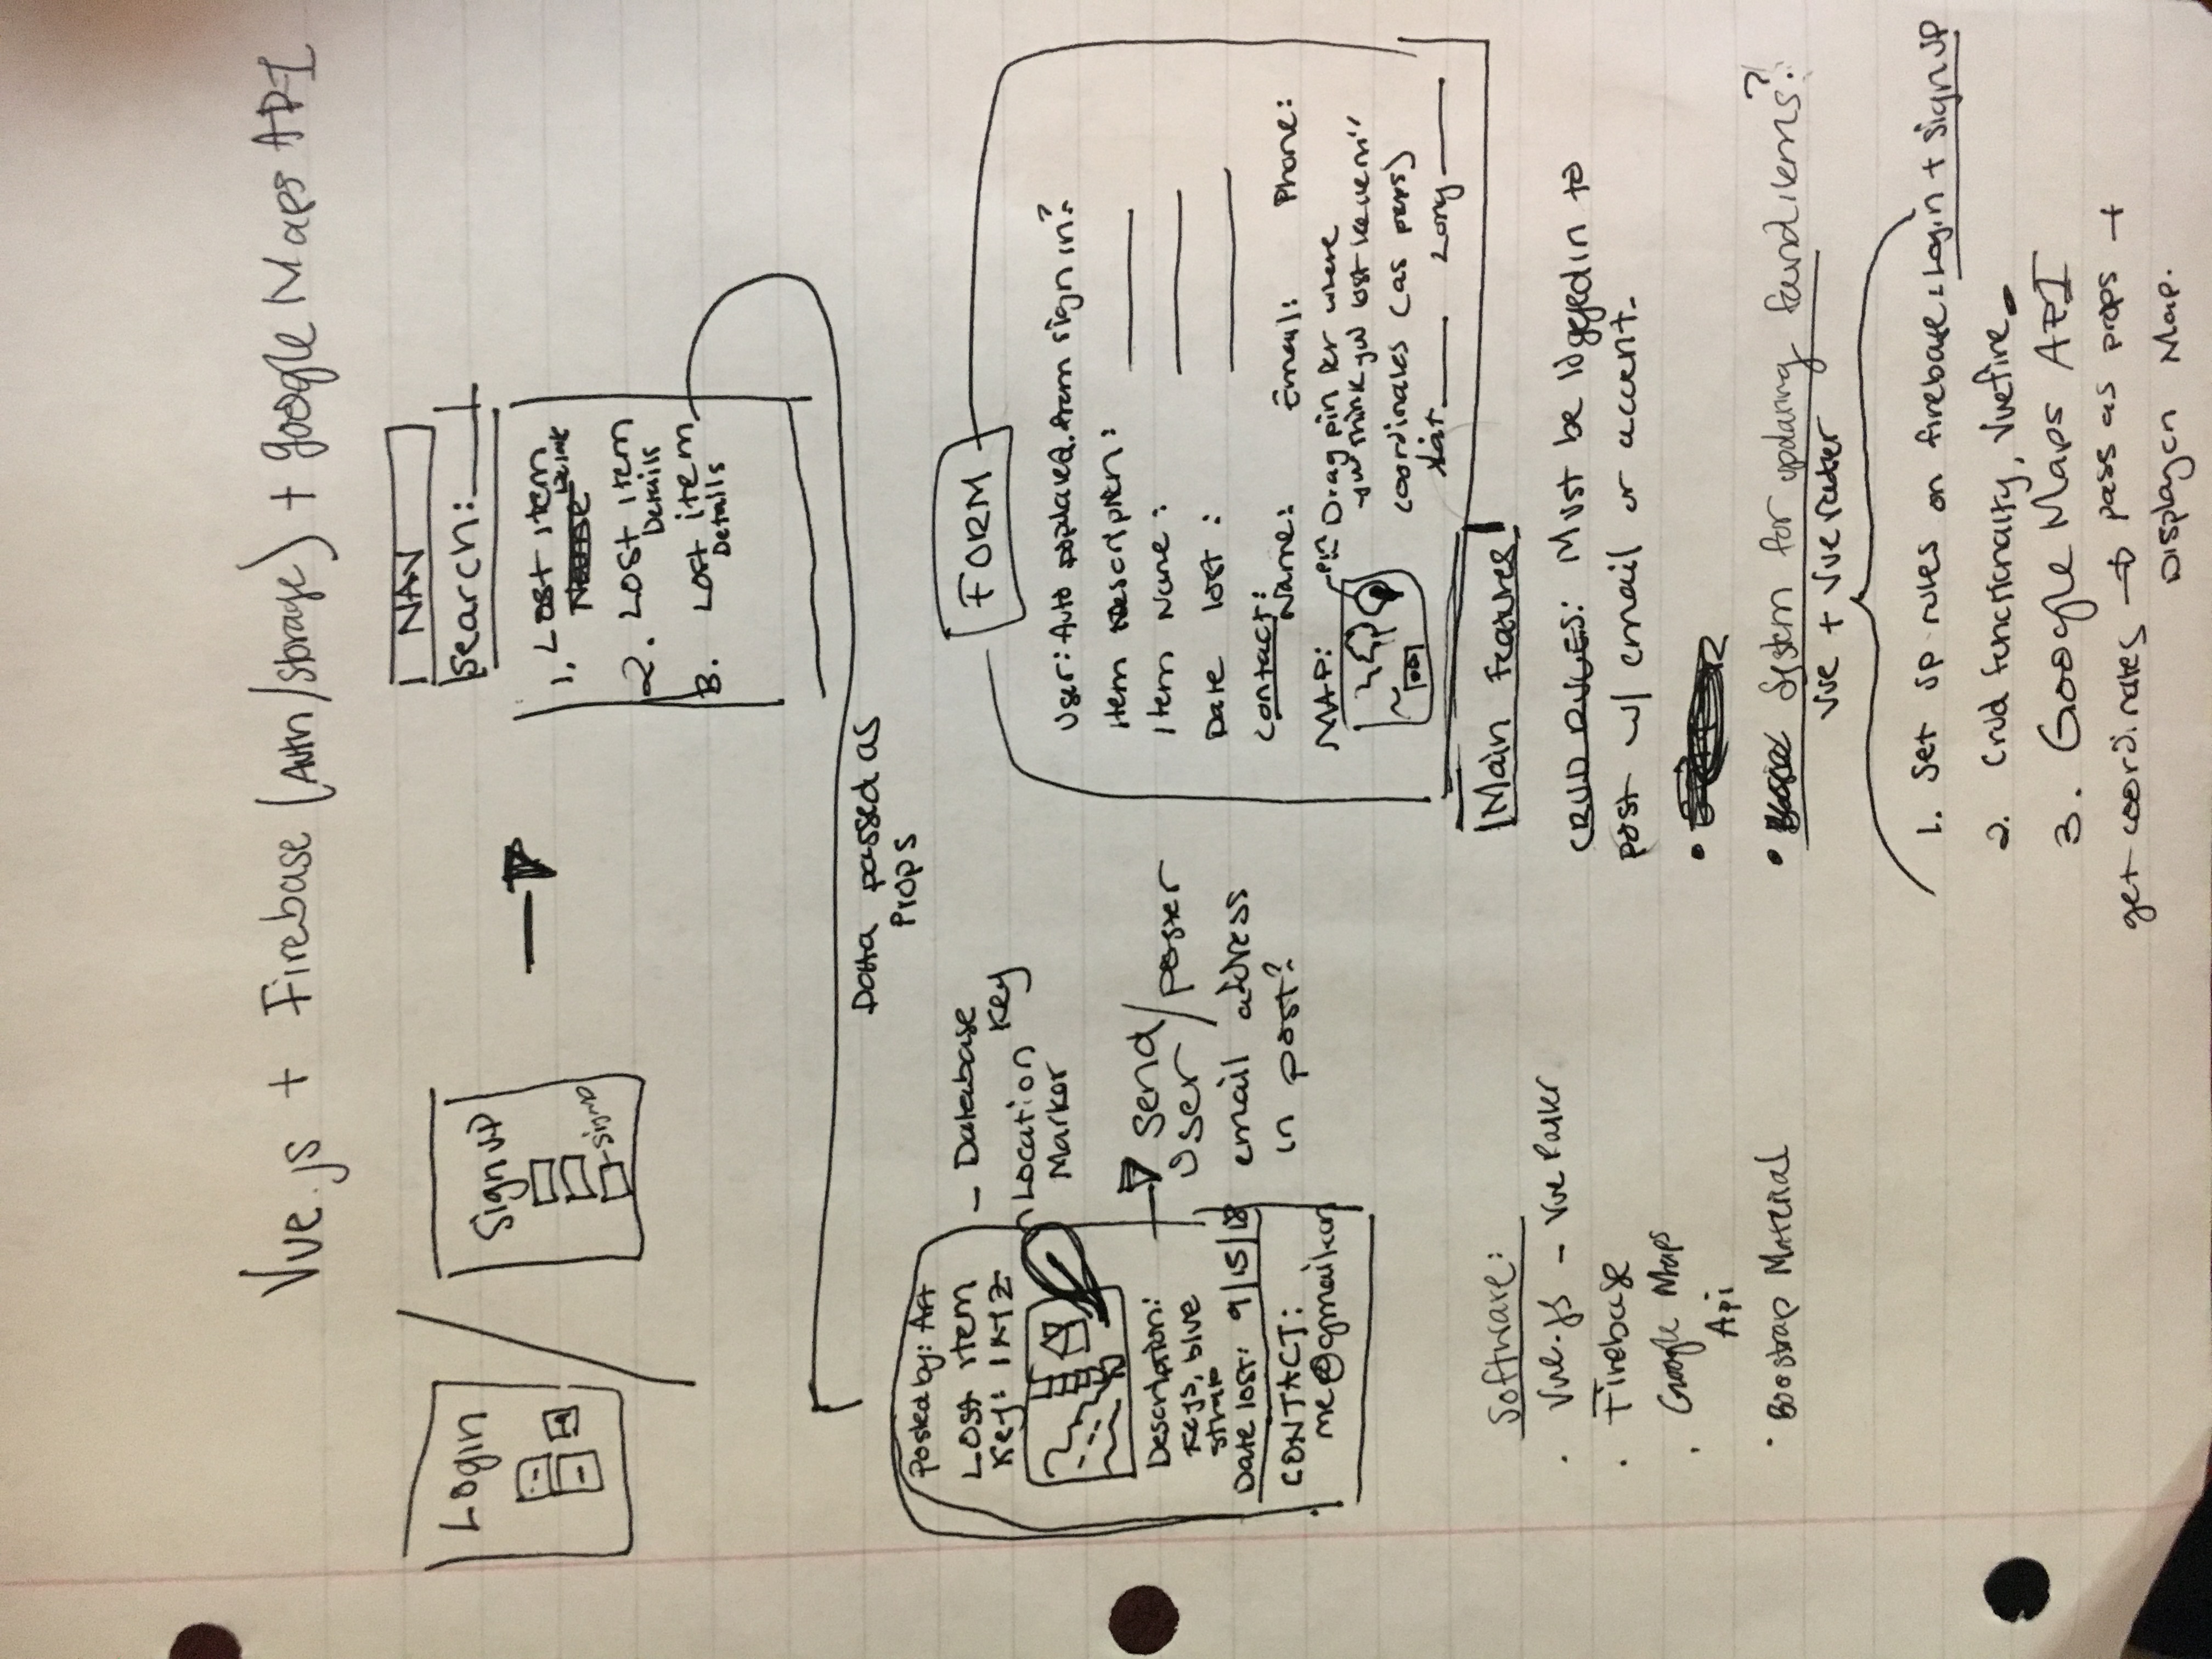 Vue.js + Firebase (Auth/Storage) + Google Maps API
Login
Sign up
Sign up
NAV
Search:
1. Lost item
2. Lost item
Details
3. Lost item
Details
Data passed as
Props
Posted by: Art
Lost item
Key:
- Database
Key
Location
Marker
Description:
Keys, blue
strap
Date lost: 9/15/18
CONTACT:
me@gmail.com
Send
User/poster
email address
in post?
FORM
User: Auto populated from sign in?
Item Description:
Item Name:
Date lost:
Contact:
Name: Email: Phone:
MAP:
pin
Drag pin for where
you think you lost
coordinates (as props)
Lat Long
Software:
. Vue.js - Vue Router
. Firebase
. Google Maps
Api
. Boostrap Material
Main Features
CRUD RULES: Must be logged in to
post w/ email or account.
• System for updating found items?
Vue + Vue router
1. Set up rules on firebase: Login + Sign up
2. Crud functionality, Vuefire
3. Google Maps API
get coordinates → pass as props →
Display on Map.